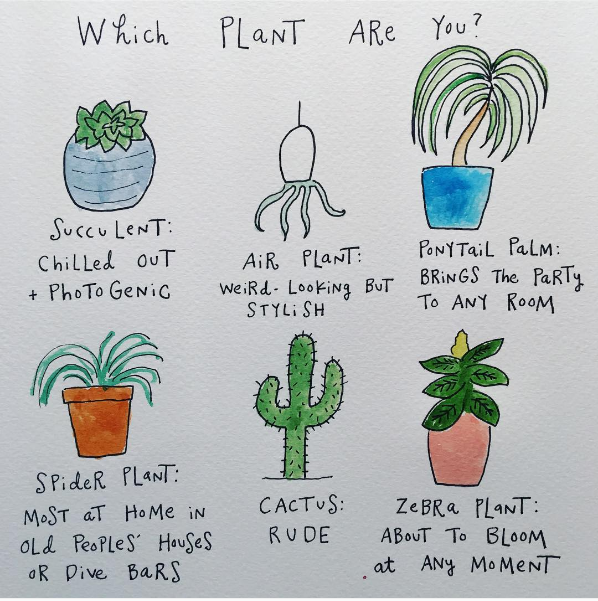 Which PLANT ARe You?
SuccuLeNT:
CHiLLeD OUT
+ PHoToGeNiC
AiR PLANT:
WeiRD-LooKiNG BUT
STYLiSH
PoNYTaiL PaLM:
BRiNGS THe PaRTy
To ANY RooM
SPideR PLaNT:
MoST aT HoMe iN
OLD PeoPLeS' HouSeS
oR Dive BaRS
CACTUS:
RUDE
ZeBRa PLaNT:
ABouT To BLooM
at ANy MoMeNT